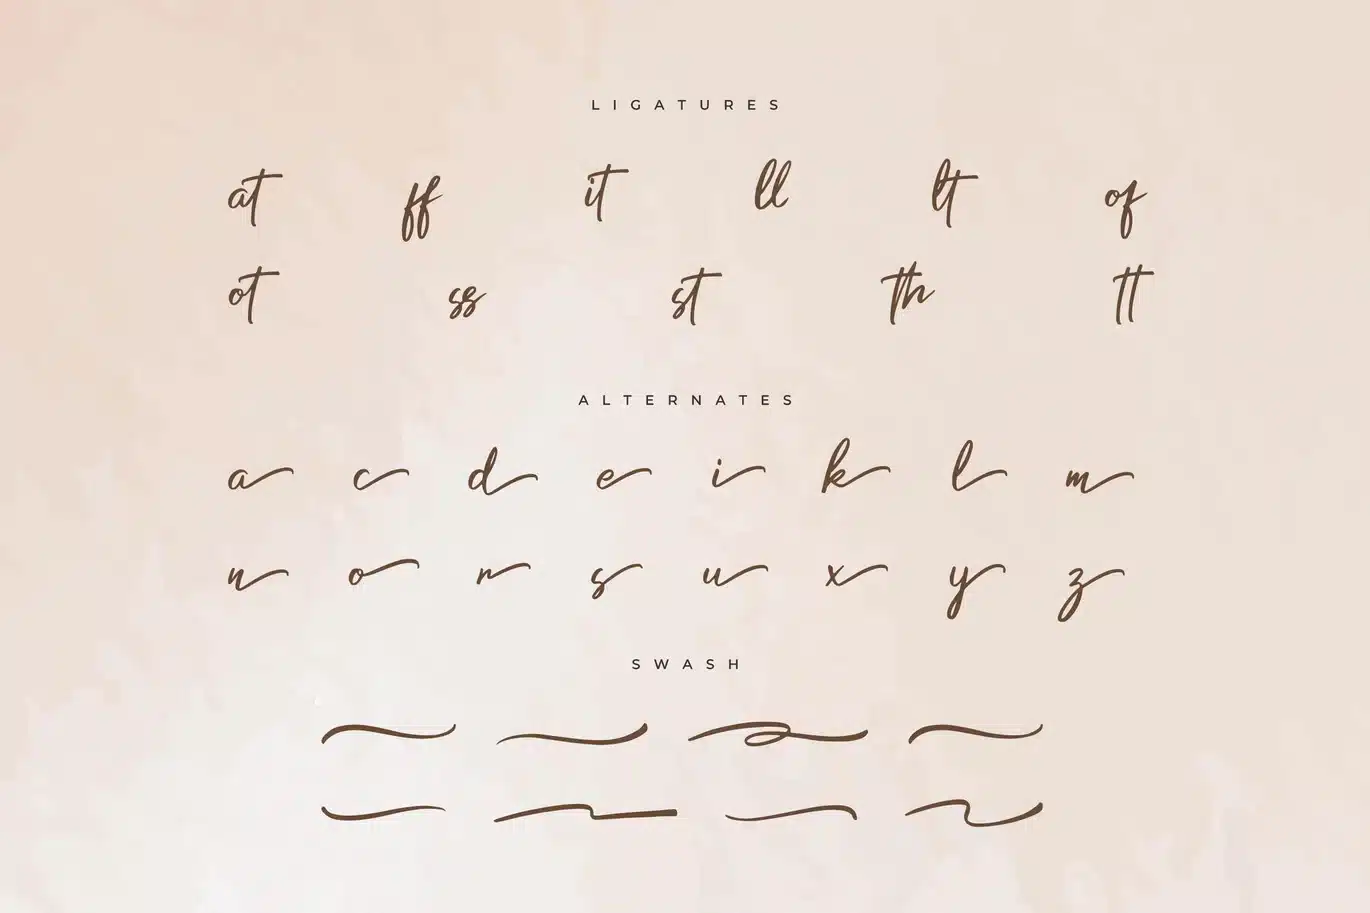 LIGATURES
at ff it ll lt of
ot ss st th tt
ALTERNATES
a c d e i k l m
n o r s u x y z
SWASH